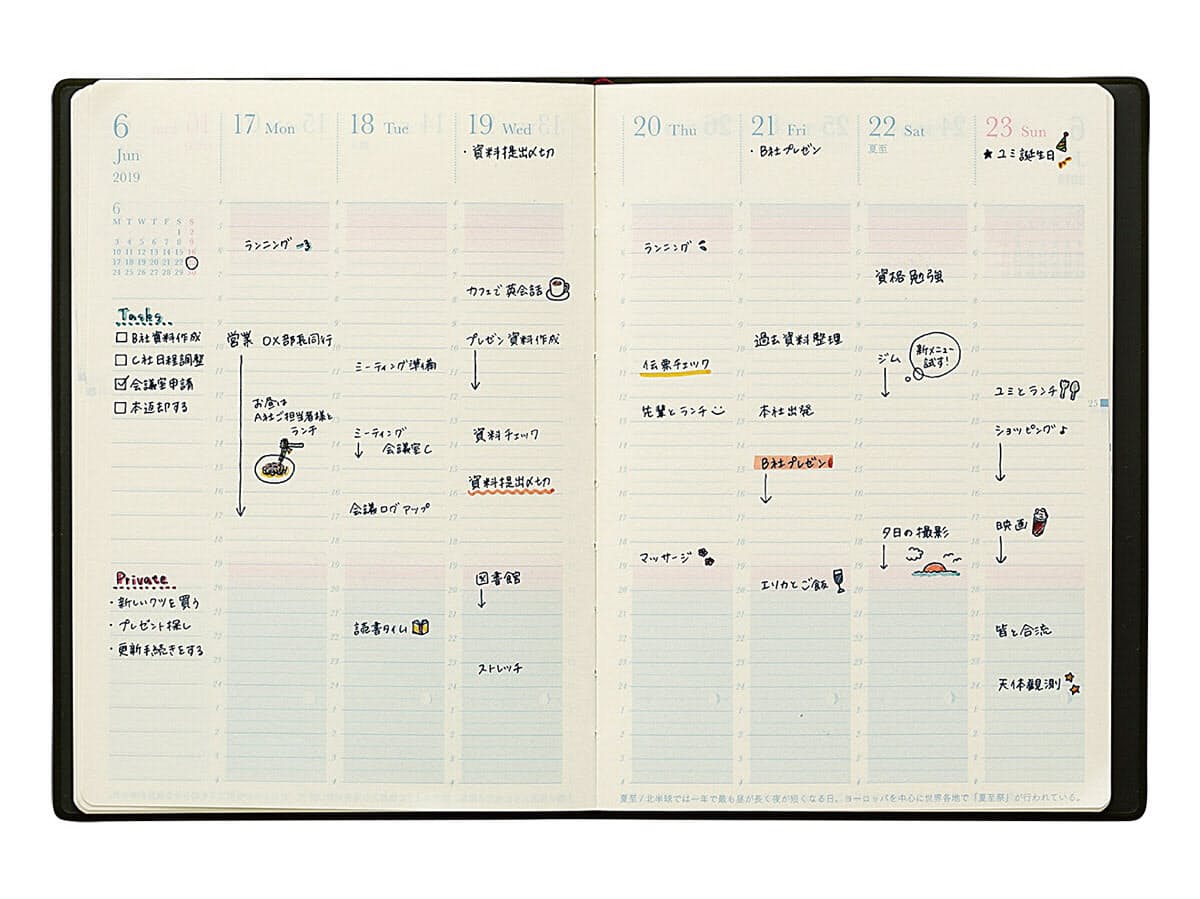 6
Jun
2019
6
M T W T F S S
1 2
3 4 5 6 7 8 9
10 11 12 13 14 15 16
17 18 19 20 21 22
24 25 26 27 28 29 30
Tasks
B社資料作成
C社日程調整
会議室申請
本返却する
Private
・新しいクツを買う
・プレゼント探し
・更新手続きをする
17 Mon
ランニング
営業 OX部長同行
お昼は
A社ご担当者様と
ランチ
18 Tue
ミーティング準備
ミーティング
会議室C
会議ログアップ
読書タイム
19 Wed
・資料提出〆切
カフェで英会話
プレゼン資料作成
資料チェック
資料提出〆切
図書館
ストレッチ
20 Thu
ランニング
伝票チェック
先輩とランチ
マッサージ
21 Fri
・B社プレゼン
過去資料整理
本社出発
B社プレゼン
エリカとご飯
22 Sat
夏至
資格勉強
ジム
新メニュー
試す!
夕日の撮影
23 Sun
★ユミ誕生日
ユミとランチ
ショッピング♪
映画
皆と合流
天体観測
25
夏至/北半球では一年で最も昼が長く夜が短くなる日。ヨーロッパを中心に世界各地で「夏至祭」が行われている。